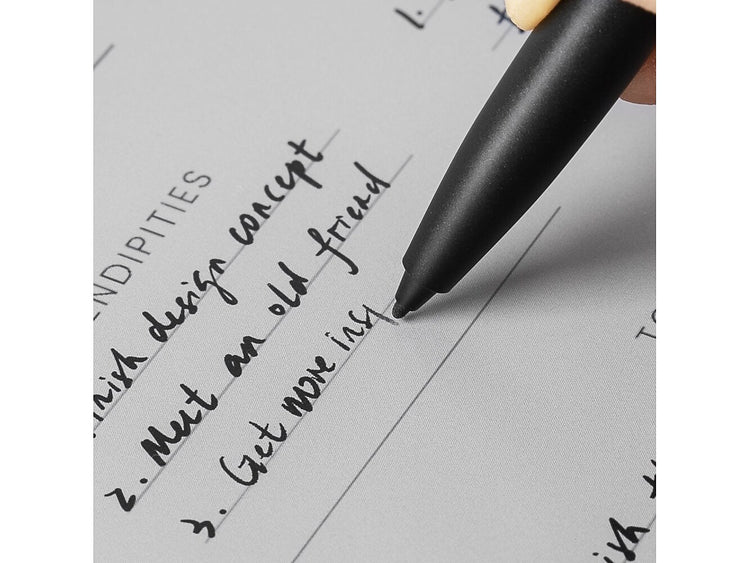 1.
ENDIPITIES
nish design concept
2. Meet an old friend
3. Get more ins
TO
ish